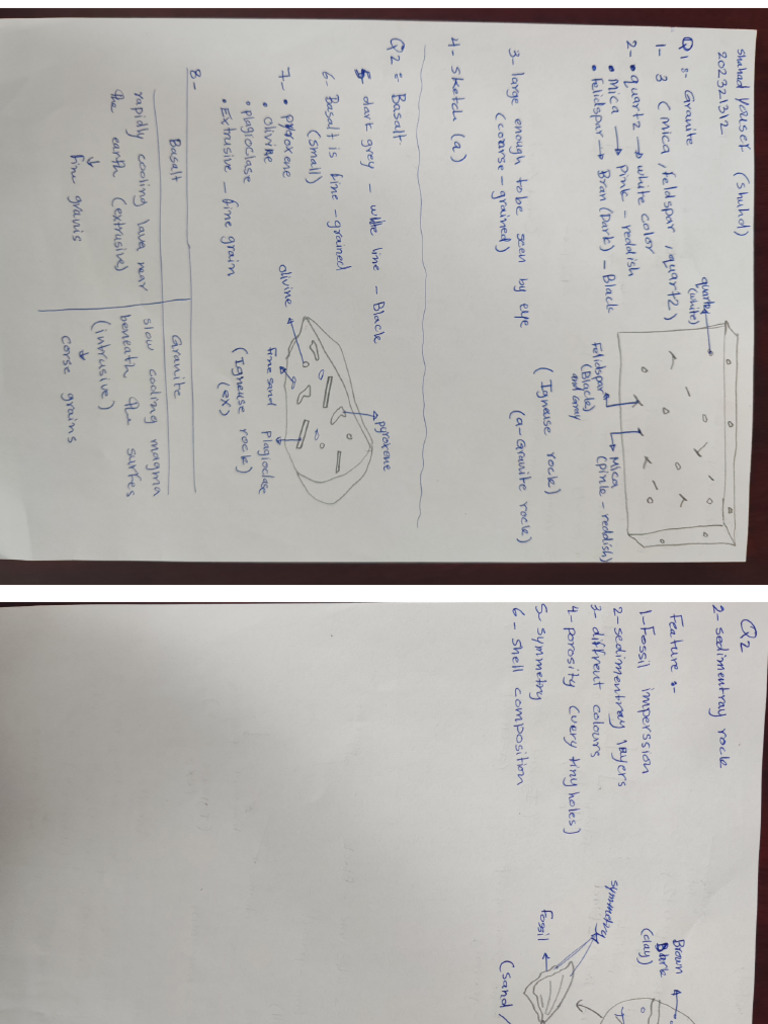 shuhad Yousef (shuhd)
202321312
Q1:- Granite
1- 3 (mica, feldspar, quartz)
2- • quartz → white color
• Mica → Pink - reddish
• Felidspar → Bran (Dark) - Black
3- large enough to be seen by eye
(coarse-grained)
4- Sketch (a)
quartz
(white)
Felidspar
(Black)
and Gray
Mica
(pink-reddish)
(Igneuse rock)
(a-Granite rock)
Q2:- Basalt
5- dark grey - white line - Black
6- Basalt is fine-grained
(small)
7- • pyroxene
• olivine
• plagioclase
• Extrusive - fine grain
pyroxene
olivine
fine sand
plagioclase
(Igneuse rock)
(ex)
8-
Basalt
Granite
rapidly cooling lava near
the earth (extrusive)
↓
fine granis
slow cooling magma
beneath the surfes
(intrusive)
↓
corse grains
Q2
2- sedimentray rock
Feature:-
1-Fossil imperssion
2-sedimentray layers
3- diffreut colours
4- porosity (very tiny holes)
5- symmetry
6- shell composition
Brown
Dark
(clay)
symmetry
Fossil
(sand/